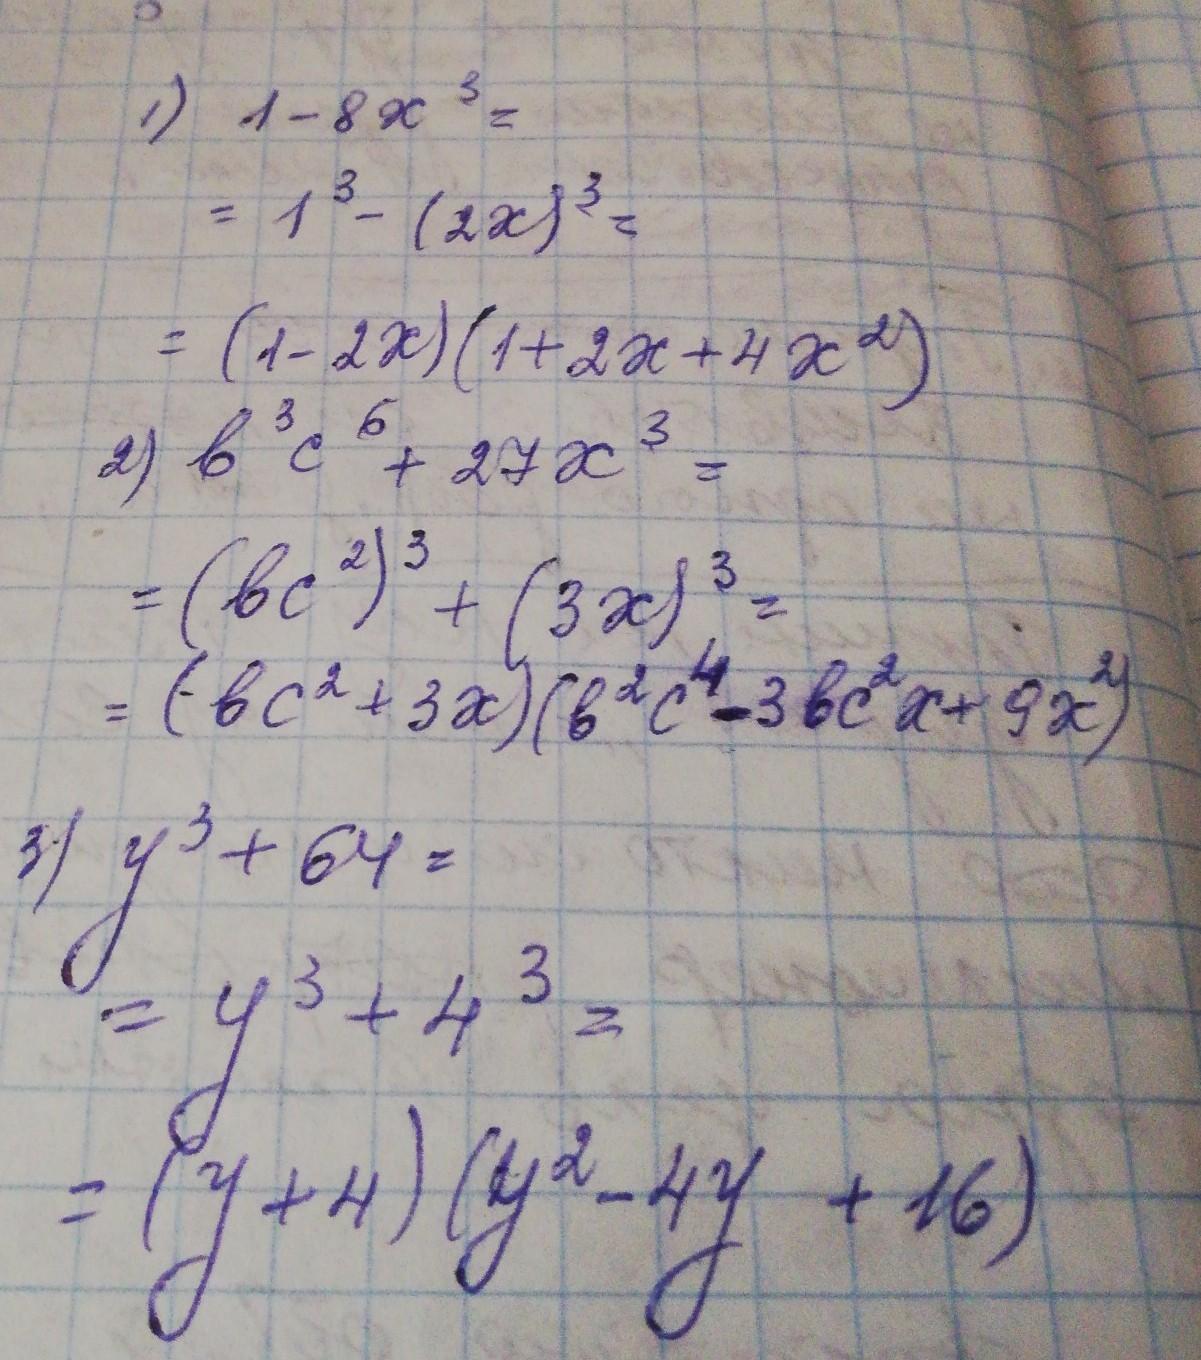 1) 1 - 8x³ =
= 1³ - (2x)³ =
= (1 - 2x)(1 + 2x + 4x²)
2) в³c⁶ + 27x³ =
= (вc²)³ + (3x)³ =
= (вc² + 3x)(в²c⁴ - 3вc²x + 9x²)
3) y³ + 64 =
= y³ + 4³ =
= (y + 4)(y² - 4y + 16)